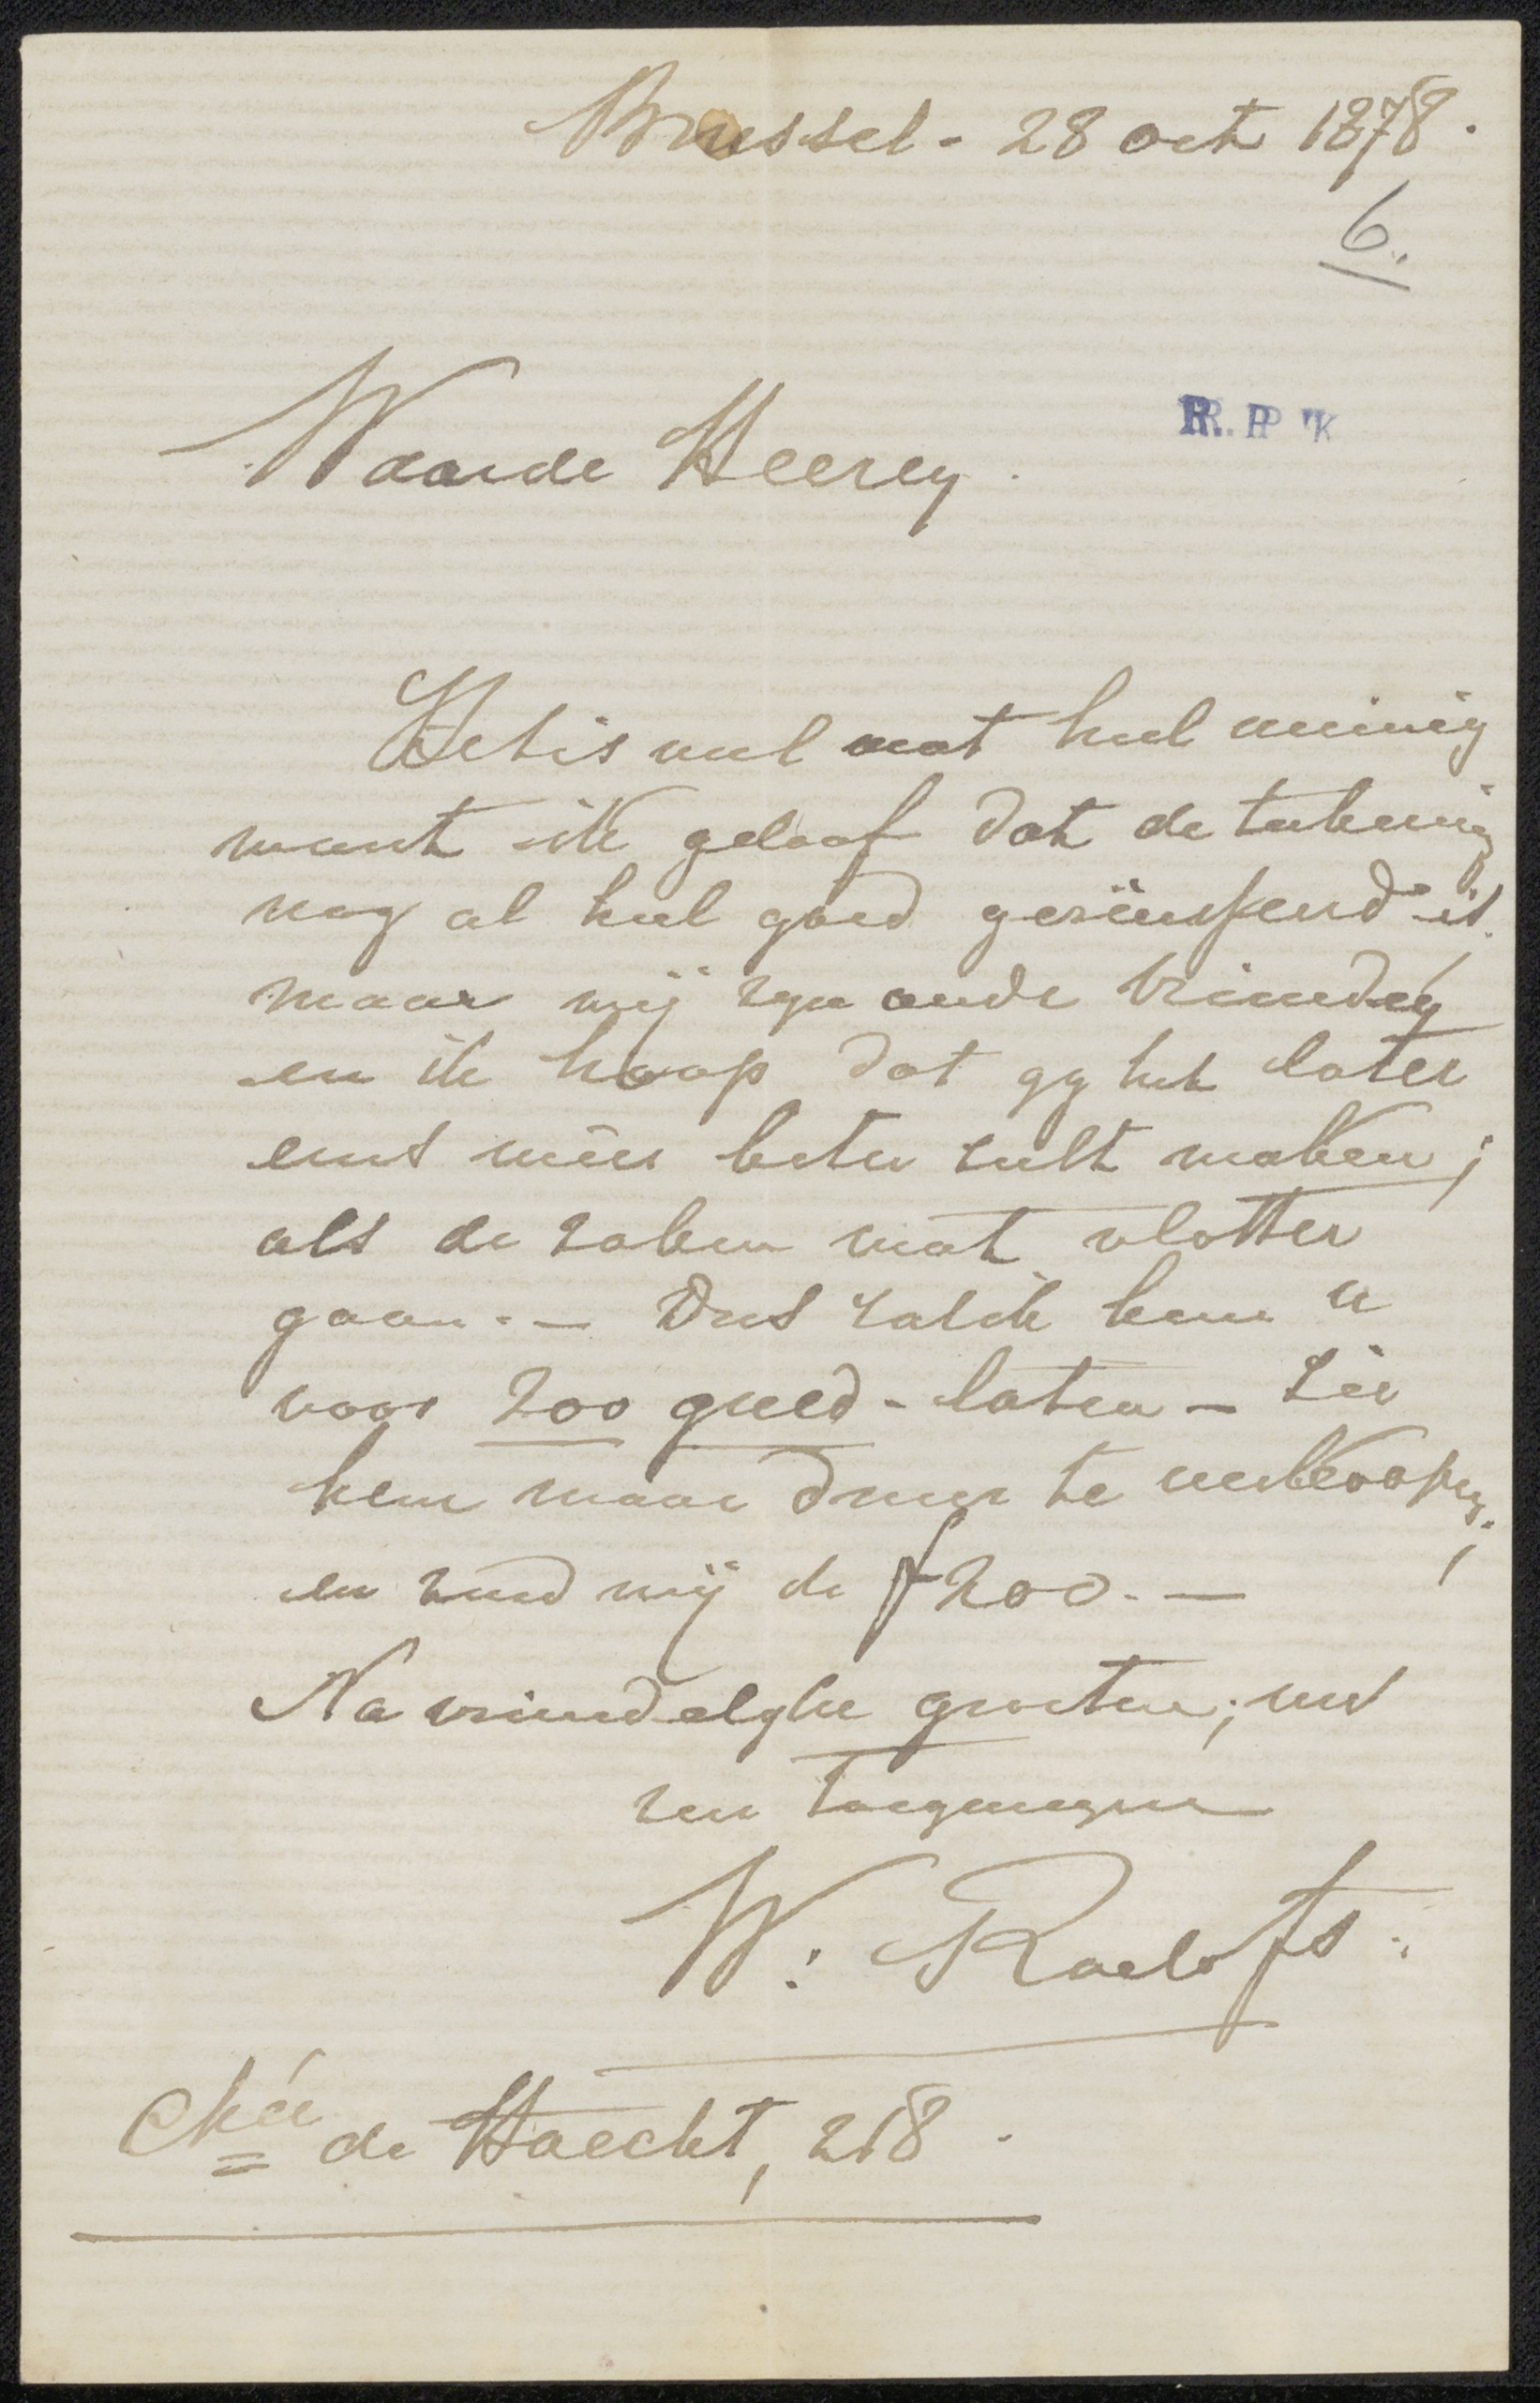 Brussel - 28 oct 1878.
6.
R. P K
Waarde Heeren
Het is wel wat heel weinig
want ik geloof dat de tekening
nog al heel goed gerëusseerd is.
maar wij zyn oude vrienden
en ik hoop dat gy het later
eens weer beter zult maken;
als de zaken wat vlotter
gaan. - Dus zal ik hem u
voor 200 guld - laten - Zie
hem maar duur te verkoopen;
en zend mij de f 200. -
Na vriendelyke groeten; uw
zeer toegenegen
W: Roelofs.
Chée de Haecht, 218.